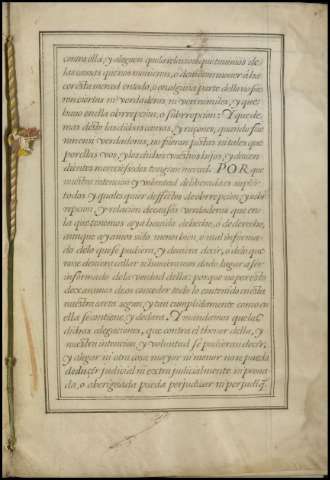 contra ella, y aleguen que la relacion que tuuimos de
las causas que nos mouieron, o deuieron mouer á ha
cer ésta merced en todo, o en alguna parte della no fue
ron ciertas ni verdaderas, ni verisimiles, y que
huuo en ella obrrepcion, o subrrepcion: Y que de
mas désto las dichas causas, y razones, quando fue
ran verdaderas, no fueran justas ni tales que
por ellas vos, y los dichos vuestros hijos, y descen
dientes merecissedes tengan merced. POR que
nuestra intencion y voluntad deliberada es suplir
todos y qualesquier deffectos de obrrepcion, y subr
repcion y relacion de causas verdaderas que en
la que tenemos aya hauido de hecho, o de derecho,
aunque ayamos sido menos bien, o mal informa
dos delo que se pudiera, y deuiera decir, o delo que
no se deuiera callar ni huuieramos dado lugar a ser
informados de la verdad della: porque no por esto
dexaramos de os conceder todo lo contenido en ésta
nuestra carta segun, y tan cumplidamente como en
ella se contiene, y declara. Y mandamos que las
dichas alegaciones, que contra el thenor della, y
nuestra intencion, y voluntad se pudieran decir,
y alegar ni otra cosa mayor ni menor no se pueda
deducir judicial ni extra judicialmente ni proua
da, o aberiguada pueda perjudicar ni perjudiq.